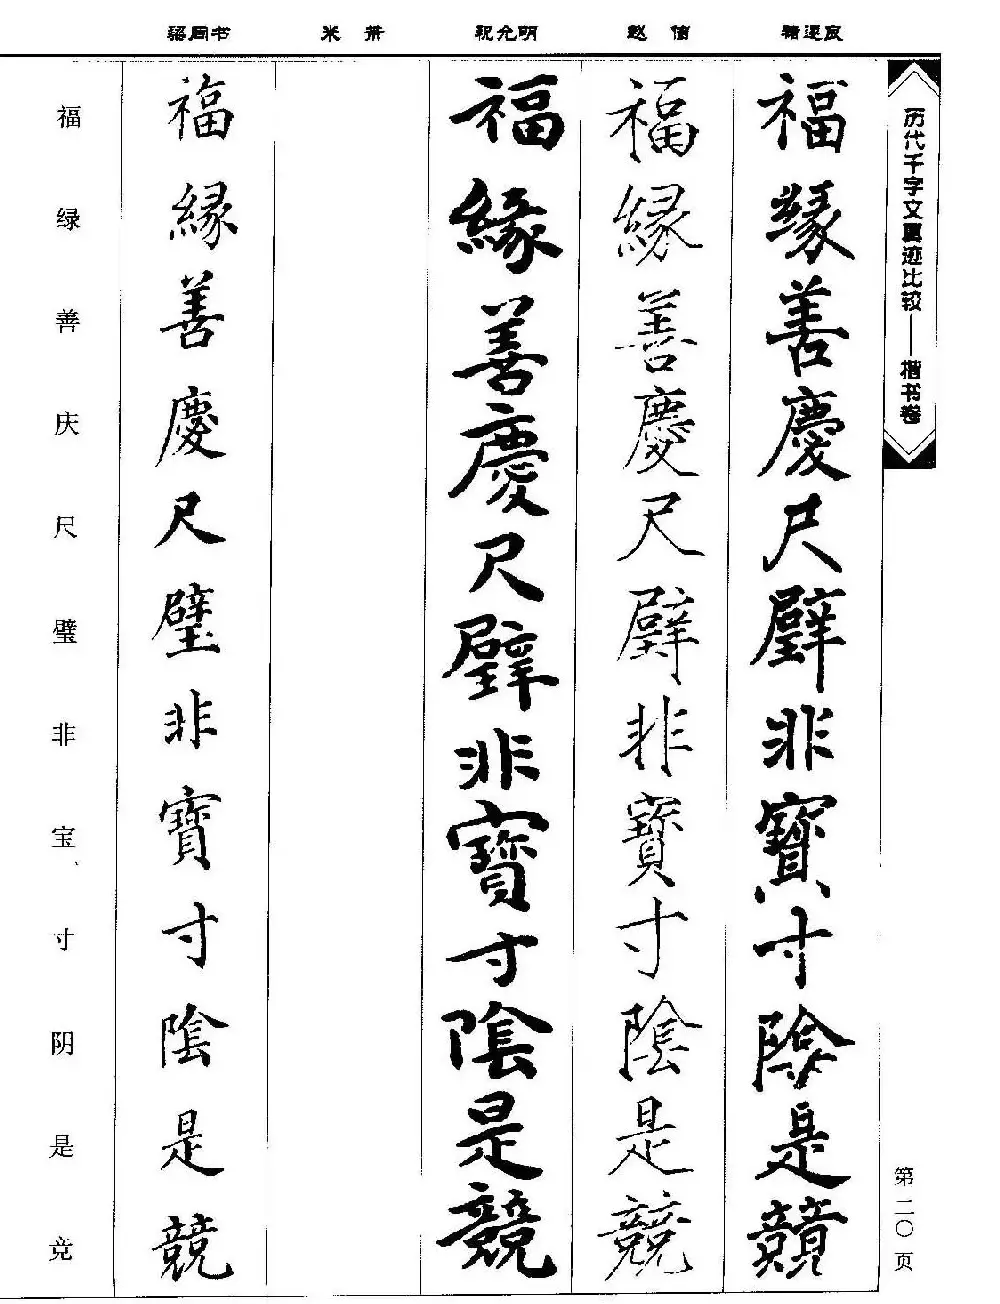 褚遂良
赵佶
祝允明
米芾
历代千字文墨迹比较——楷书卷
第二〇页
福緣善慶尺璧非寶寸陰是競
福緣善慶尺璧非寶寸陰是競
福緣善慶尺璧非寶寸陰是競
福緣善慶尺璧非寶寸陰是競
福绿善庆尺璧非宝、寸阴是竞